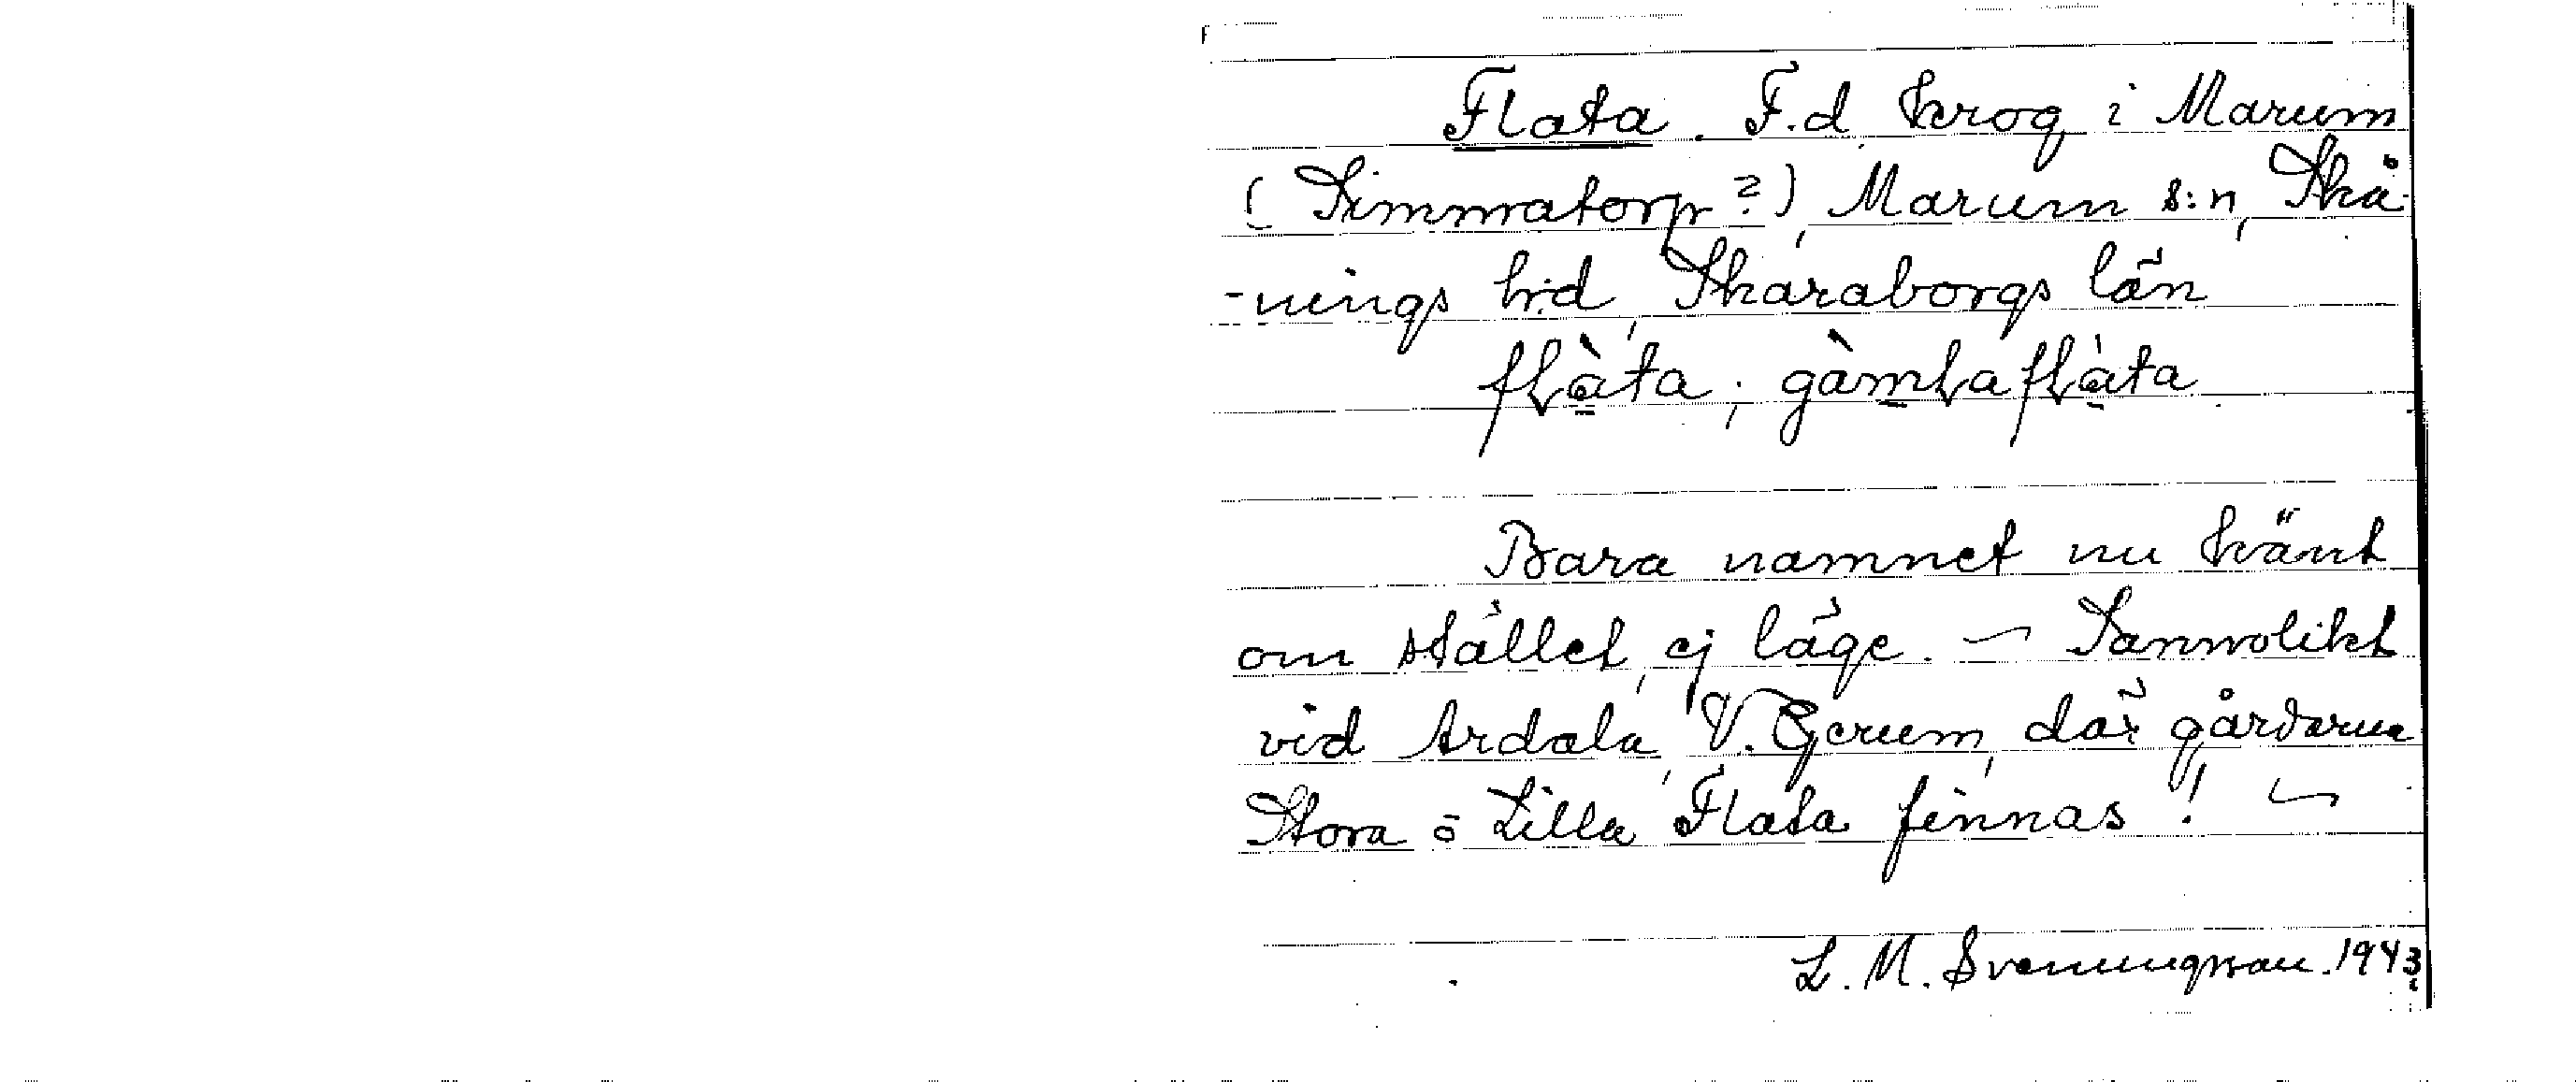 Flata. F.d. krog i Marum
(Simmatorp?), Marum s:n, Skå-
-nings h:d, Skaraborgs län
flàta; gàmlaflàta
Bara namnet nu känt
om stället, ej läge. – Sannolikt
vid Ardala, V. Gerum, där gårdarna
Stora o Lilla Flata finnas! –
L. M. Svenungsson. 1943